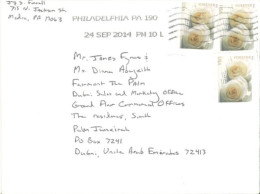 713 N. Jackson St.
Media, PA 19063
PHILADELPHIA PA 190
24 SEP 2014 PM 10 L
Mr. James
Ms. Diane
Fairmont The Palm
Dubai Sales and Marketing Office
Grand Floor Commercial Offices
The residences, South
Palm Jumeirah
PO Box 7241
Dubai, United Arab Emirates 72413